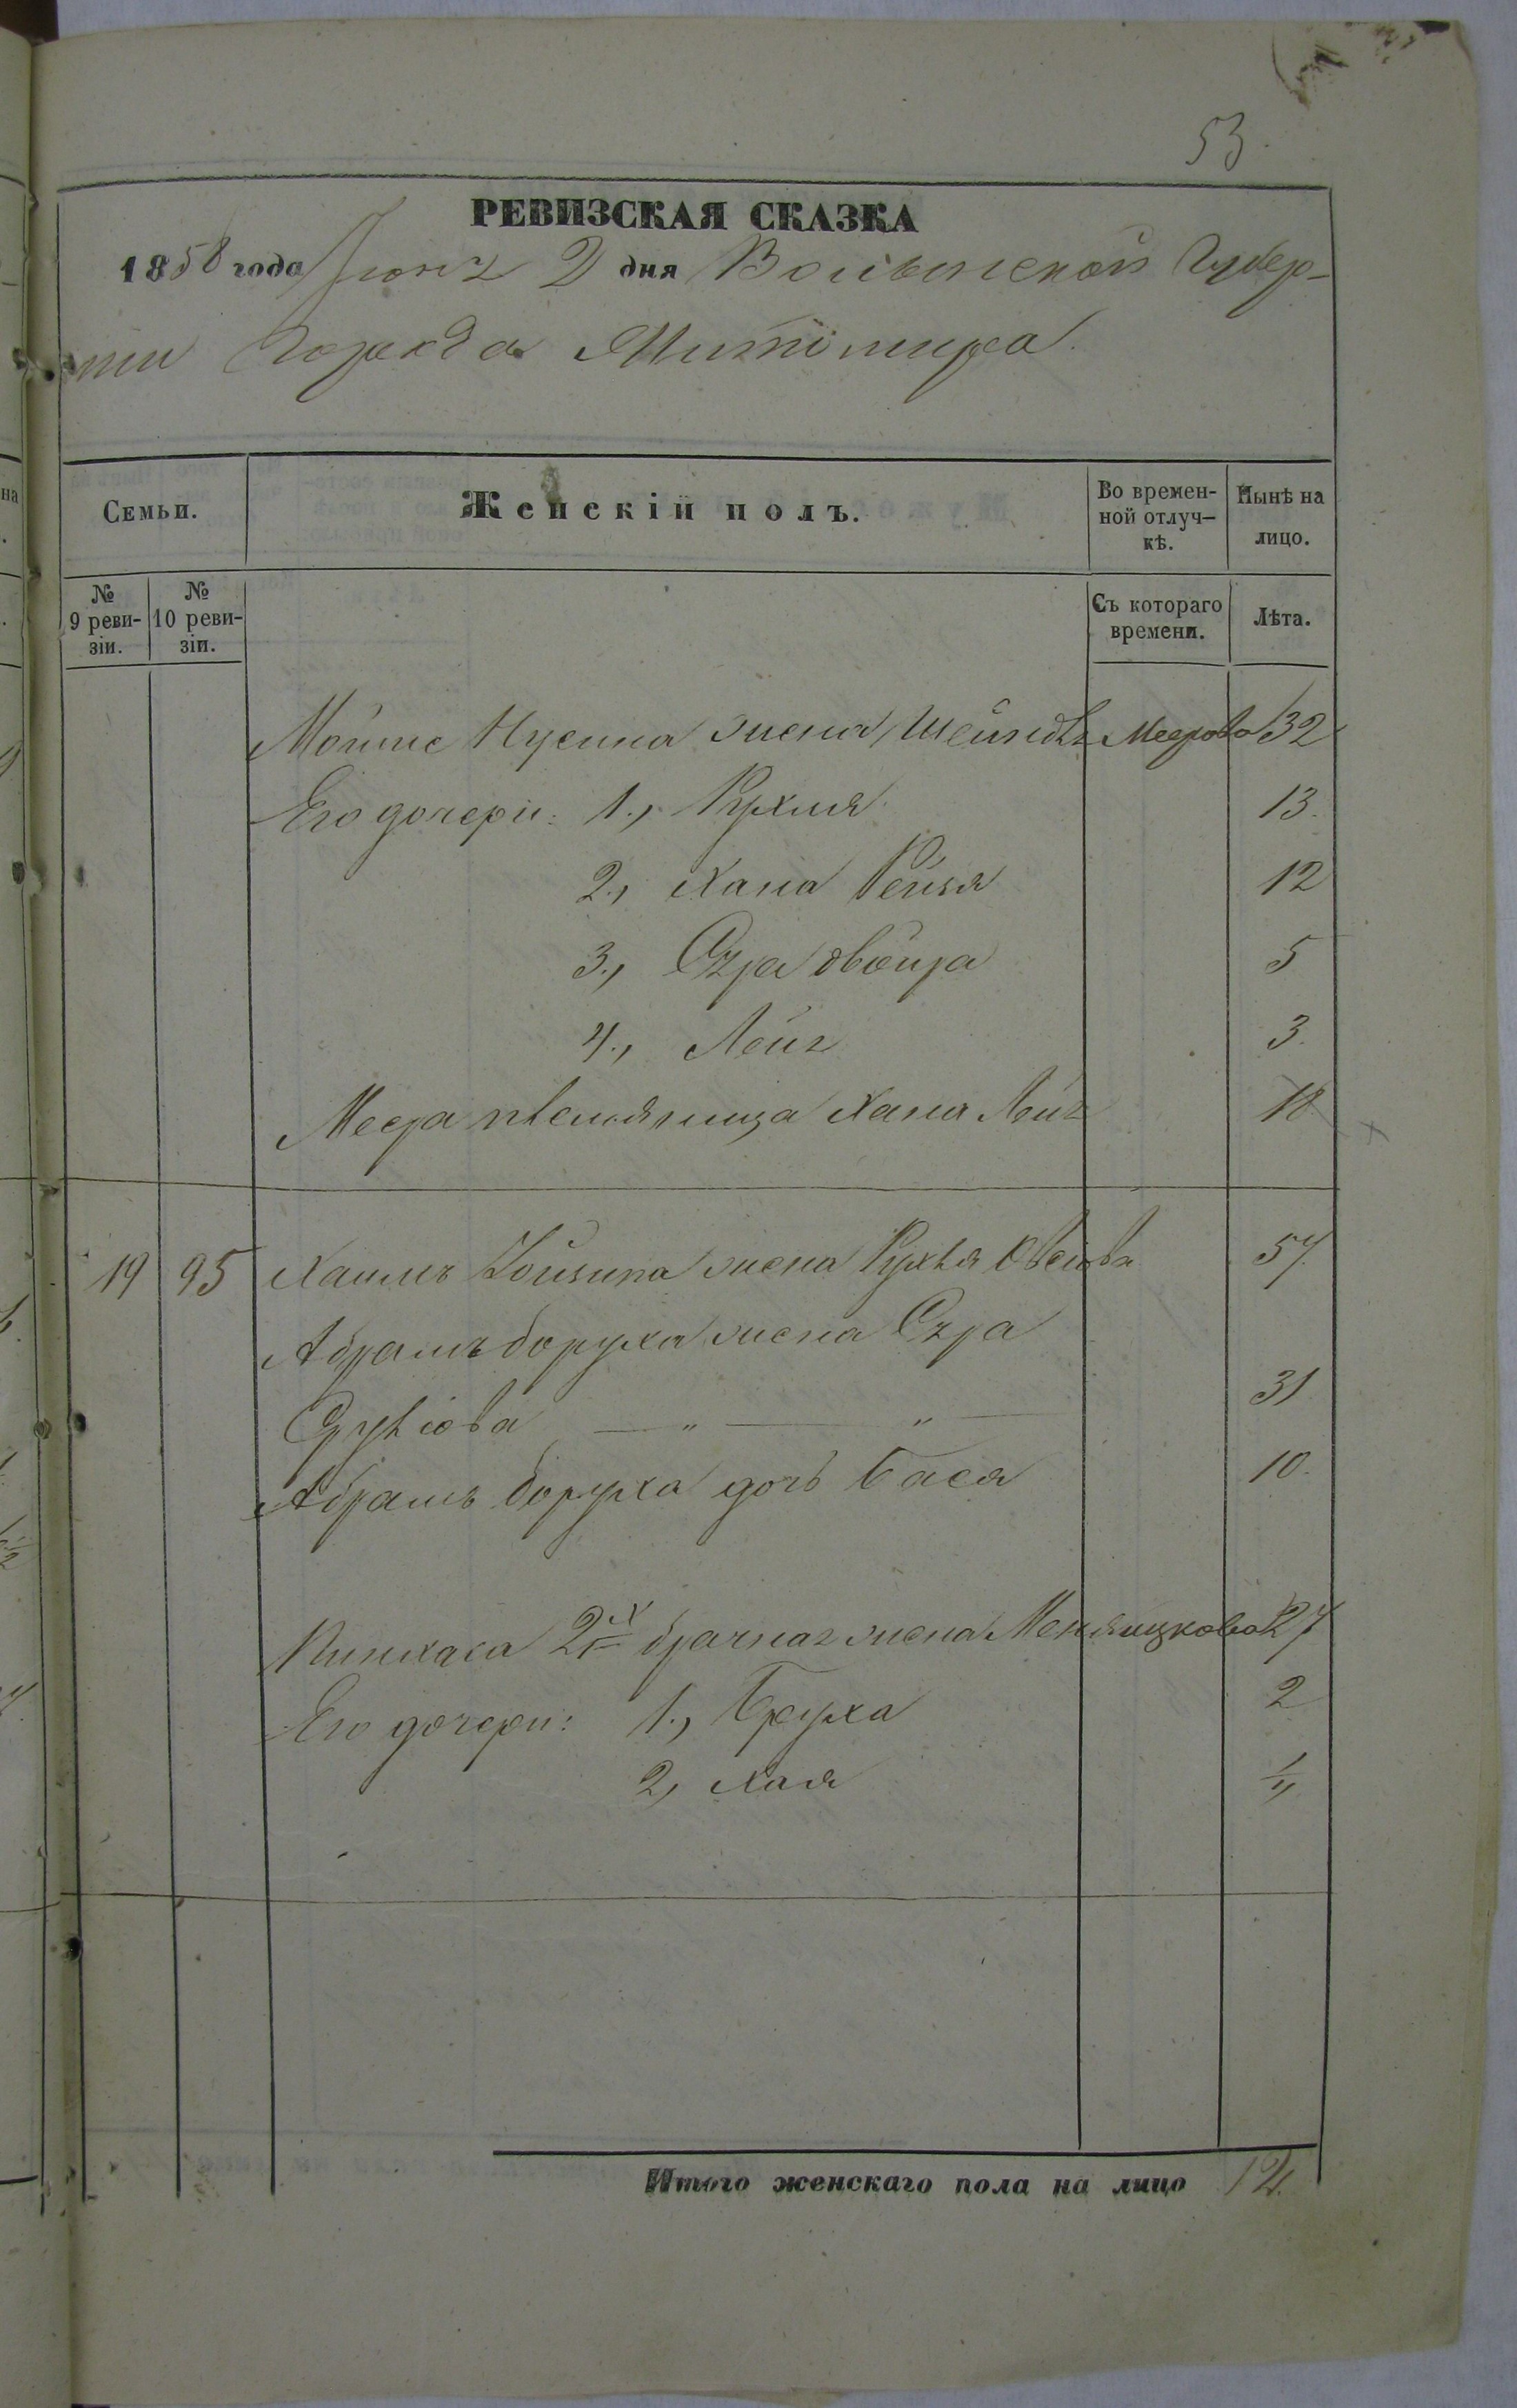 53.
РЕВИЗСКАЯ СКАЗКА
1858 года Июня 2 дня Волынской Губер-
нии Города Житомира.
Семьи.
Женскій полъ.
Во времен-
ной отлуч-
кѣ.
Нынѣ на
лицо.
№
9 реви-
зіи.
№
10 реви-
зіи.
Съ котораго
времени.
Лѣта.
Мошие Нусина жена Шейндля Меерова 32
Его дочери: 1., Рухля 13.
2., Хана Рейзя 12
3., Сура двойра 5
4., Лея 3.
Меера племянница Хана Лея 18
19 95 Хаима Жена Рухля 57
Абрамъ боруха жена Сура
31
Абрамъ боруха дочь Бася 10.
Пинхаса 2й брачная жена 27
Его дочери: 1., Бруха 2
2, Хая
Итого женскаго пола на лицо 12.